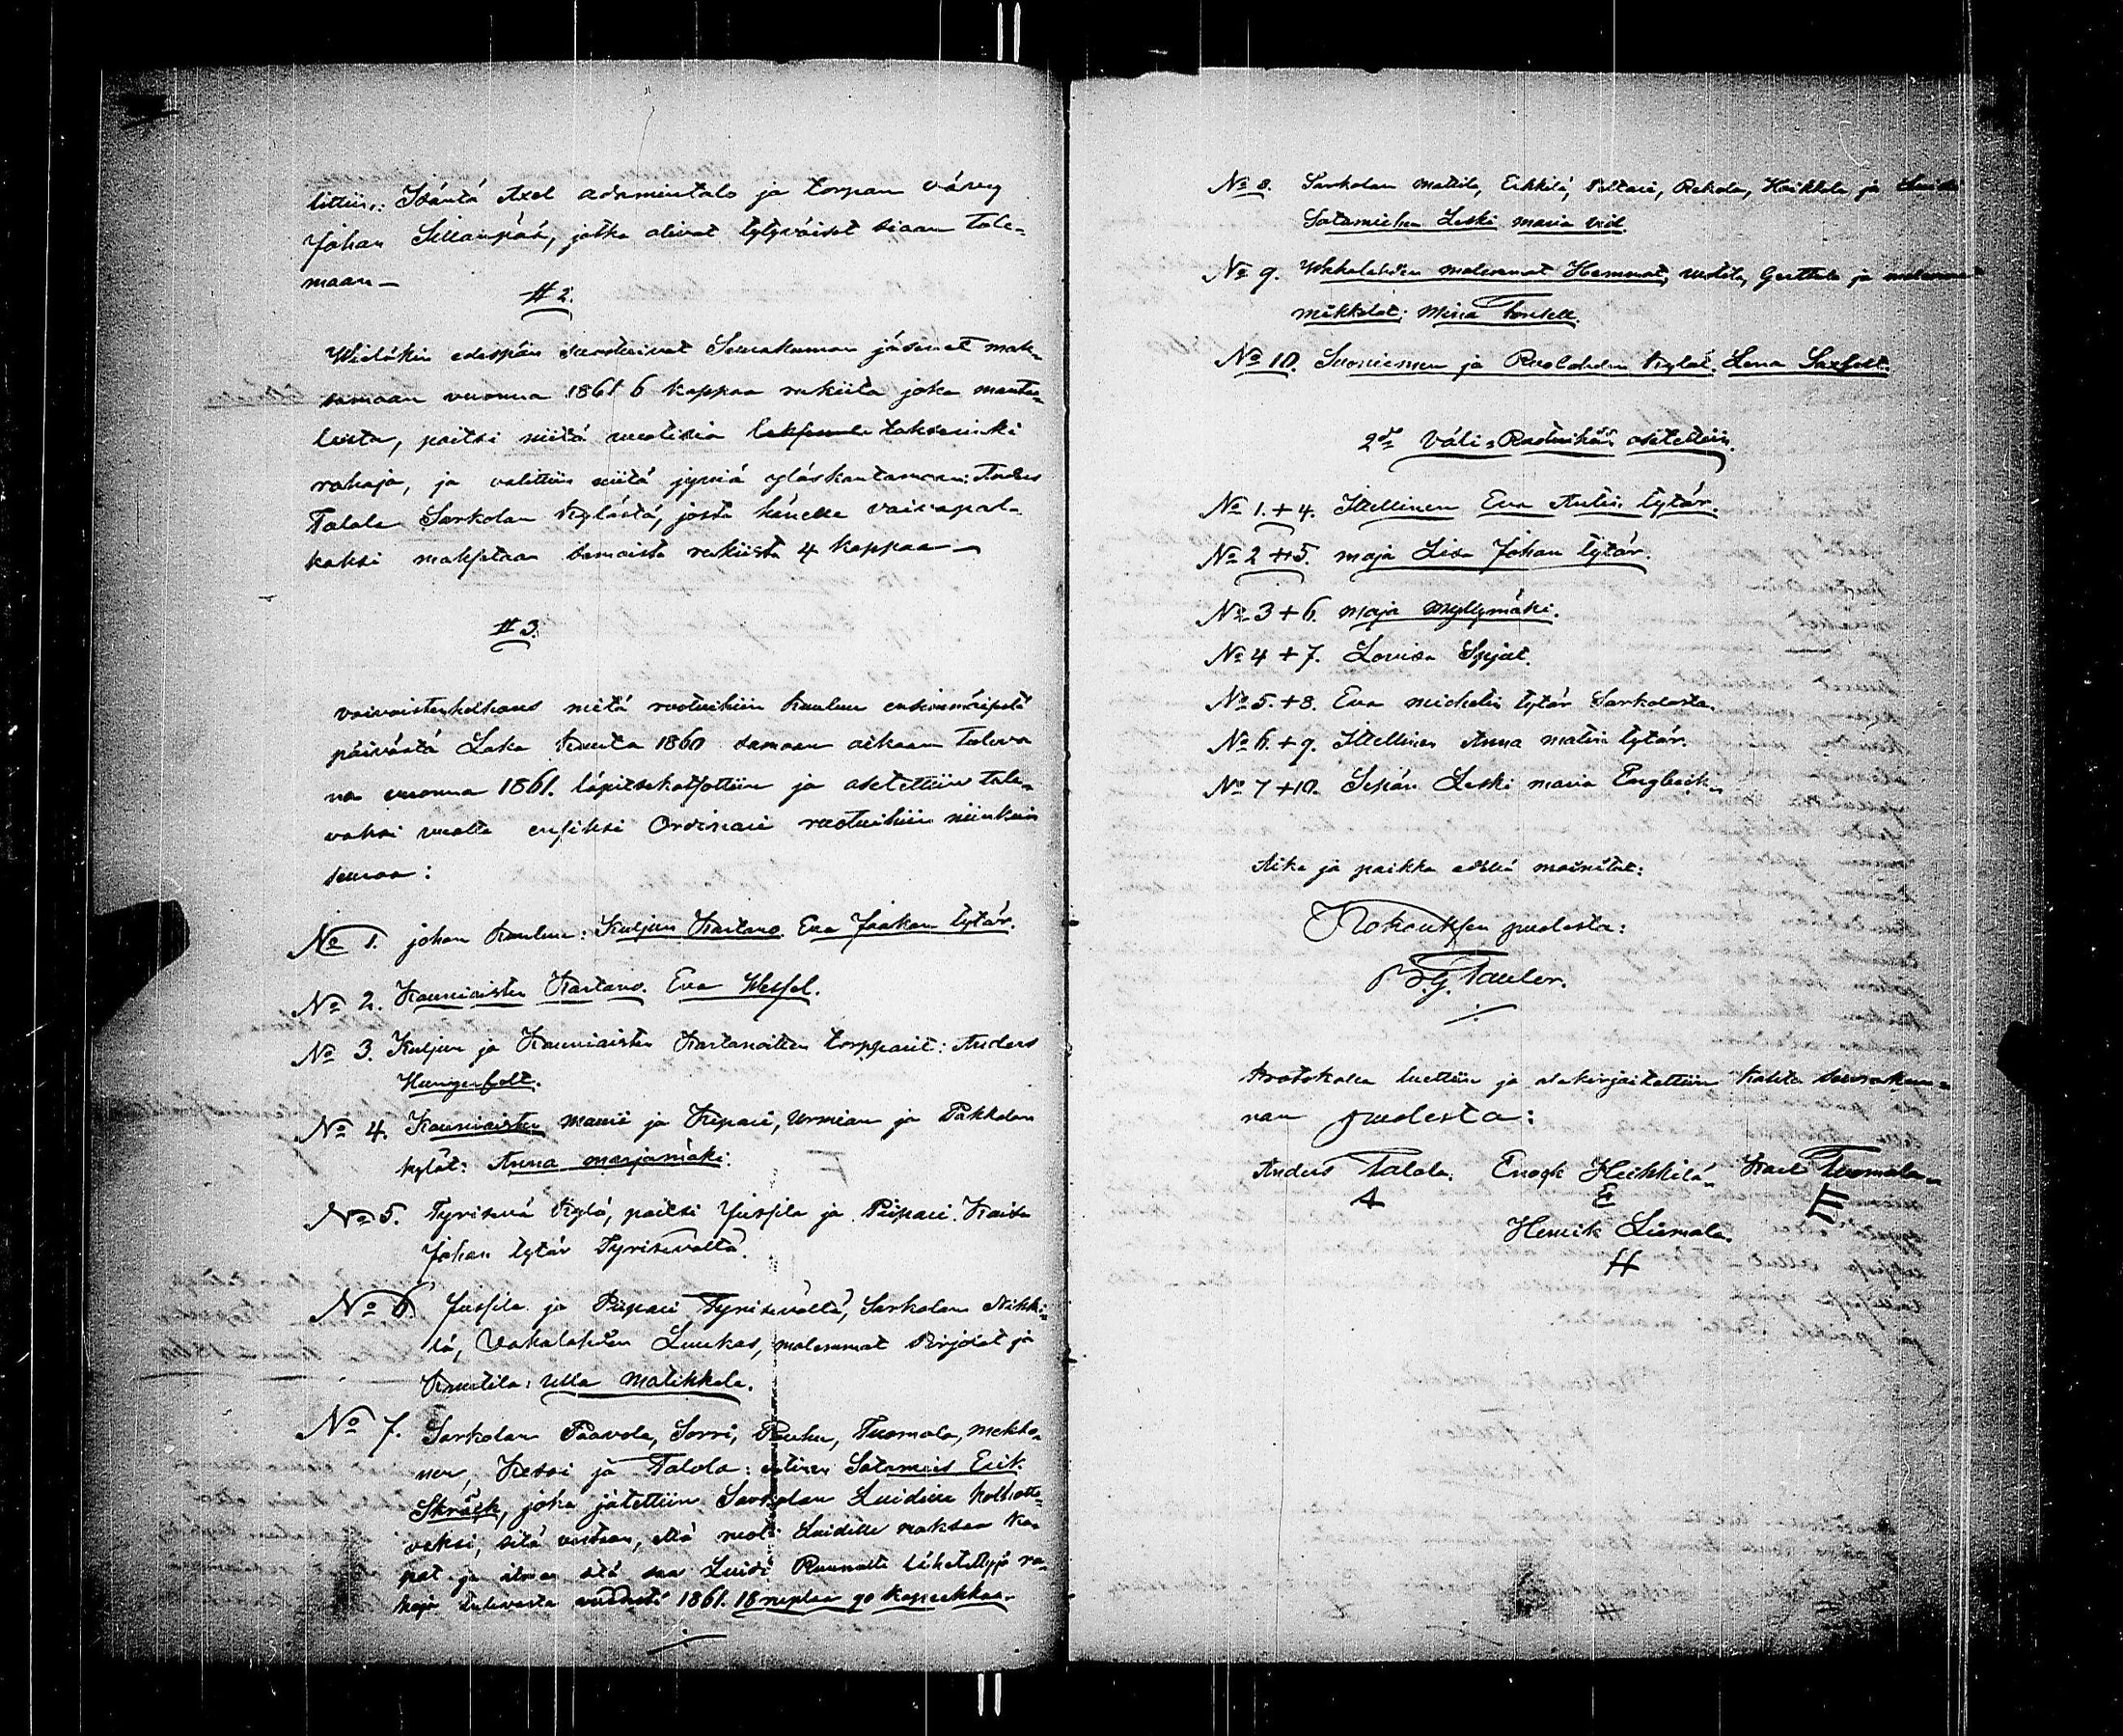 littiin: Isäntä Axel Adamintalo ja torpan vävy
Johan Sillanpää, jotka olivat tytyväiset siaan tule-
maan —
# 2.
Wieläkin edespäin suostuivat Seurakunnan jäsenet mak-
samaan vuonna 1861 6 kappaa rukiita joka mantta-
lista, paitsi niitä vuotisia taksirinki
rahoja, ja valittiin niitä jyviä ylöskantamaan: Anders
Talola Sarkolan kylästä, josta hänelle vaivapal-
kaksi maksetaan samoista rukiista 4 kappaa —
# 3.
vaivaistenholhous mitä ruotuihin kuuluu ensimmäisestä
päivästä Loka kuuta 1860 samaan aikaan tuleva
na vuonna 1861. läpitsekatsottiin ja asetettiin tule-
vaksi vuotta ensiksi Ordinari ruotuihin niinkuin
seuraa:
No 1. johon kuuluu: Kuljun Kartano Eva Jaakon tytär.
No 2. Kauniaisten Kartano. Eva Wessel.
No 3. Kuljun ja Kauniaisten Kartanoitten torpparit: Anders
Hungerfelt.
No 4. Kauniaisten Manni ja Kipari, Urmian ja Pakkolan
kylät: Anna Marjamäki.
No 5. Tyrisevä kylä, paitsi Jussila ja Piipari. Kaisa
Johan tytär Tyrisevältä.
No 6. Jussila ja Piipari Tyrisevältä, Sarkolan Nikki-
lä, Vakalahden Luukas, molemmat Pirjolat ja
Knuutila: Ulla Matikkala.
No 7. Sarkolan Paavola, Sorri, Pouhu, Tuomola, Mekko-
nen, Kessi ja Talola: entinen Sotamies Erik
Skräck, joka jätettiin Sarkolan Luidille holhotta-
vaksi, sitä vastaan, että ruoti Luidille maksaa ka-
pat ja ilman sitä saa Luidi Ruunulta lähetettyjä ra-
hoja tulevasta vuodesta 1861. 18 ruplaa 90 kopeekkaa.
No 8. Sarkolan Mattila, Erkkilä, Poltari, Rekola, Heikkilä ja Luidi
Sotamiehen Leski Maria Vid.
No 9. molemmat Hemmat, Uotila, Gerttula ja molemmat
Mikkolat: Mina Forsell.
No 10. Suoniemen ja kylät. Lena Saxfelt.
2do Väli-Ruotuihin asetettiin.
No 1. + 4. Itellinen Eva Antin tytär.
No 2 + 5. Maja Lisa Johan tytär.
No 3 + 6. Maja Myllymäki.
No 4 + 7. Lovisa Spjut.
No 5. + 8. Eva Michelin tytär Sarkolasta.
No 6. + 9. Itellinen Anna Matin tytär.
No 7 + 10. Sepän Leski Maria Engbäck.
Aika ja paikka edellä mainitut:
Kokouksen puolesta:
G. Tauler.
Protokolla luettiin ja alakirjoitettiin koko seurakun-
nan puolesta:
Anders Talola. Enock Heikkilä. Karl Tuomola.
A E E
Henrik Liimola.
H